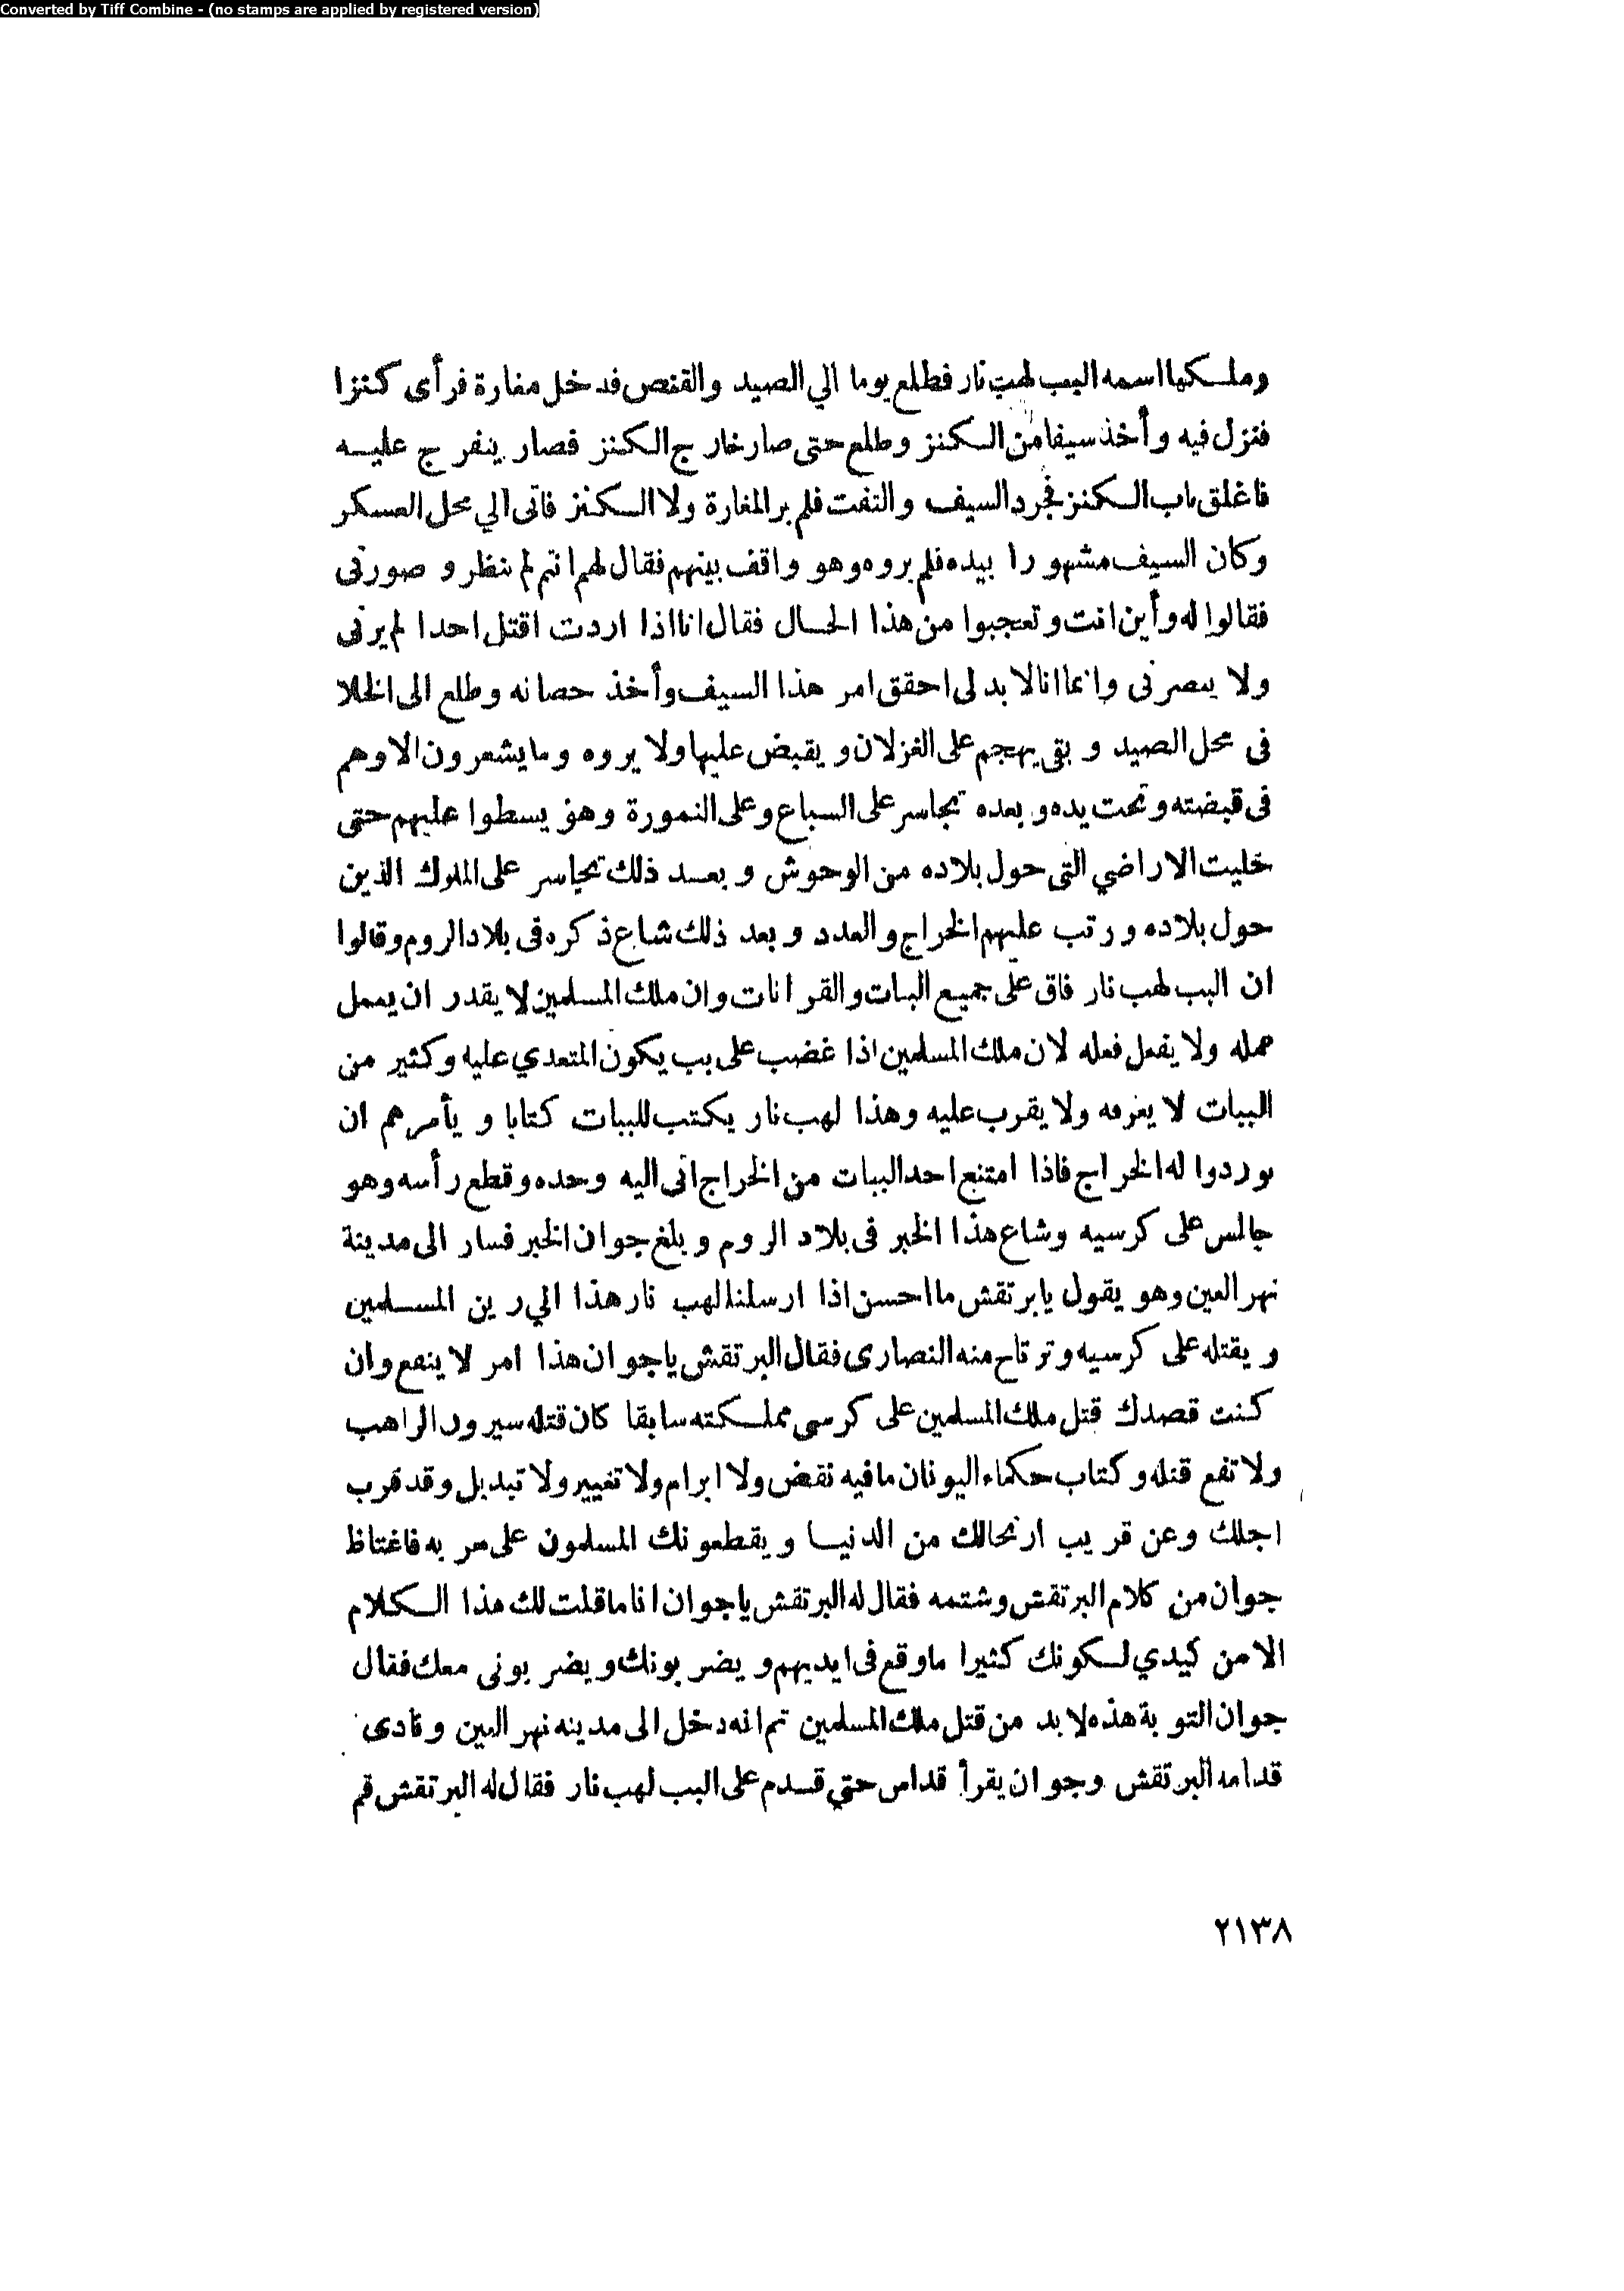 Converted by Tiff Combine - (no stamps are applied by registered version)
وملكها اسمه البب لهب نار فطلع يوما الي الصيد والقنص فدخل مغارة فرأى كنزا
فنزل فيه وأخذ سيفا من الكنز وطلع حتى صار خارج الكنز فصار ينفرج عليه
فاغلق باب الكنز فجرد السيف والتفت فلم ير المغارة ولا الكنز فاتى الي محل العسكر
وكان السيف مشهورا بيده فلم يروه وهو واقف بينهم فقال لهم انتم لم تنظرو صورتى
فقالوا له وأين انت وتعجبوا من هذا الحال فقال انا اذا اردت اقتل احدا لم يرنى
ولا يبصرنى وانما انا لا بد لى احقق امر هذا السيف وأخذ حصانه وطلع الى الخلا
فى محل الصيد وبقى يهجم على الغزلان ويقبض عليها ولا يروه وما يشعرون الا وهم
فى قبضته وتحت يده وبعده تجاسر على السباع وعلى النمورة وهو يسطوا عليهم حتى
خليت الاراضي التى حول بلاده من الوحوش وبعد ذلك تجاسر على الملوك الذين
حول بلاده ورتب عليهم الخراج والعدد وبعد ذلك شاع ذكره فى بلاد الروم وقالوا
ان البب لهب نار فاق على جميع البيات والقرانات وان ملك المسلمين لا يقدر ان يعمل
عمله ولا يفعل فعله لان ملك المسلمين اذا غضب على بب يكون المتعدي عليه وكثير من
الببات لا يعرفه ولا يقرب عليه وهذا لهب نار يكتب للببات كتابا ويأمرهم ان
يوردوا له الخراج فاذا امتنع احد الببات من الخراج اتى اليه وحده وقطع رأسه وهو
جالس على كرسيه وشاع هذا الخبر فى بلاد الروم وبلغ جوان الخبر فسار الى مدينة
نهر العين وهو يقول يا برتقش ما احسن اذا ارسلنا لهب نار هذا الي رين المسلمين
ويقتله على كرسيه وترتاح منه النصارى فقال البرتقش يا جوان هذا امر لا ينفع وان
كنت قصدك قتل ملك المسلمين على كرسى مملكته سابقا كان قتله سيرود الراهب
ولا نفع قتله وكتاب حكماء اليونان ما فيه نقض ولا ابرام ولا تغيير ولا تبديل وقد قرب
اجلك وعن قريب ارتحالك من الدنيا ويقطعونك المسلمون على مر به فاغتاظ
جوان من كلام البرتقش وشتمه فقال له البرتقش يا جوان انا ما قلت لك هذا الكلام
الا من كيدي لكونك كثيرا ما وقع فى ايديهم ويضربونك ويضربونى معك فقال
جوان التوبة هذه لا بد من قتل ملك المسلمين ثم انه دخل الى مدينه نهر العين ونادى
قدامه البرتقش وجوان يقرأ قداس حتي قدم على البب لهب نار فقال له البرتقش قم
٢١٣٨